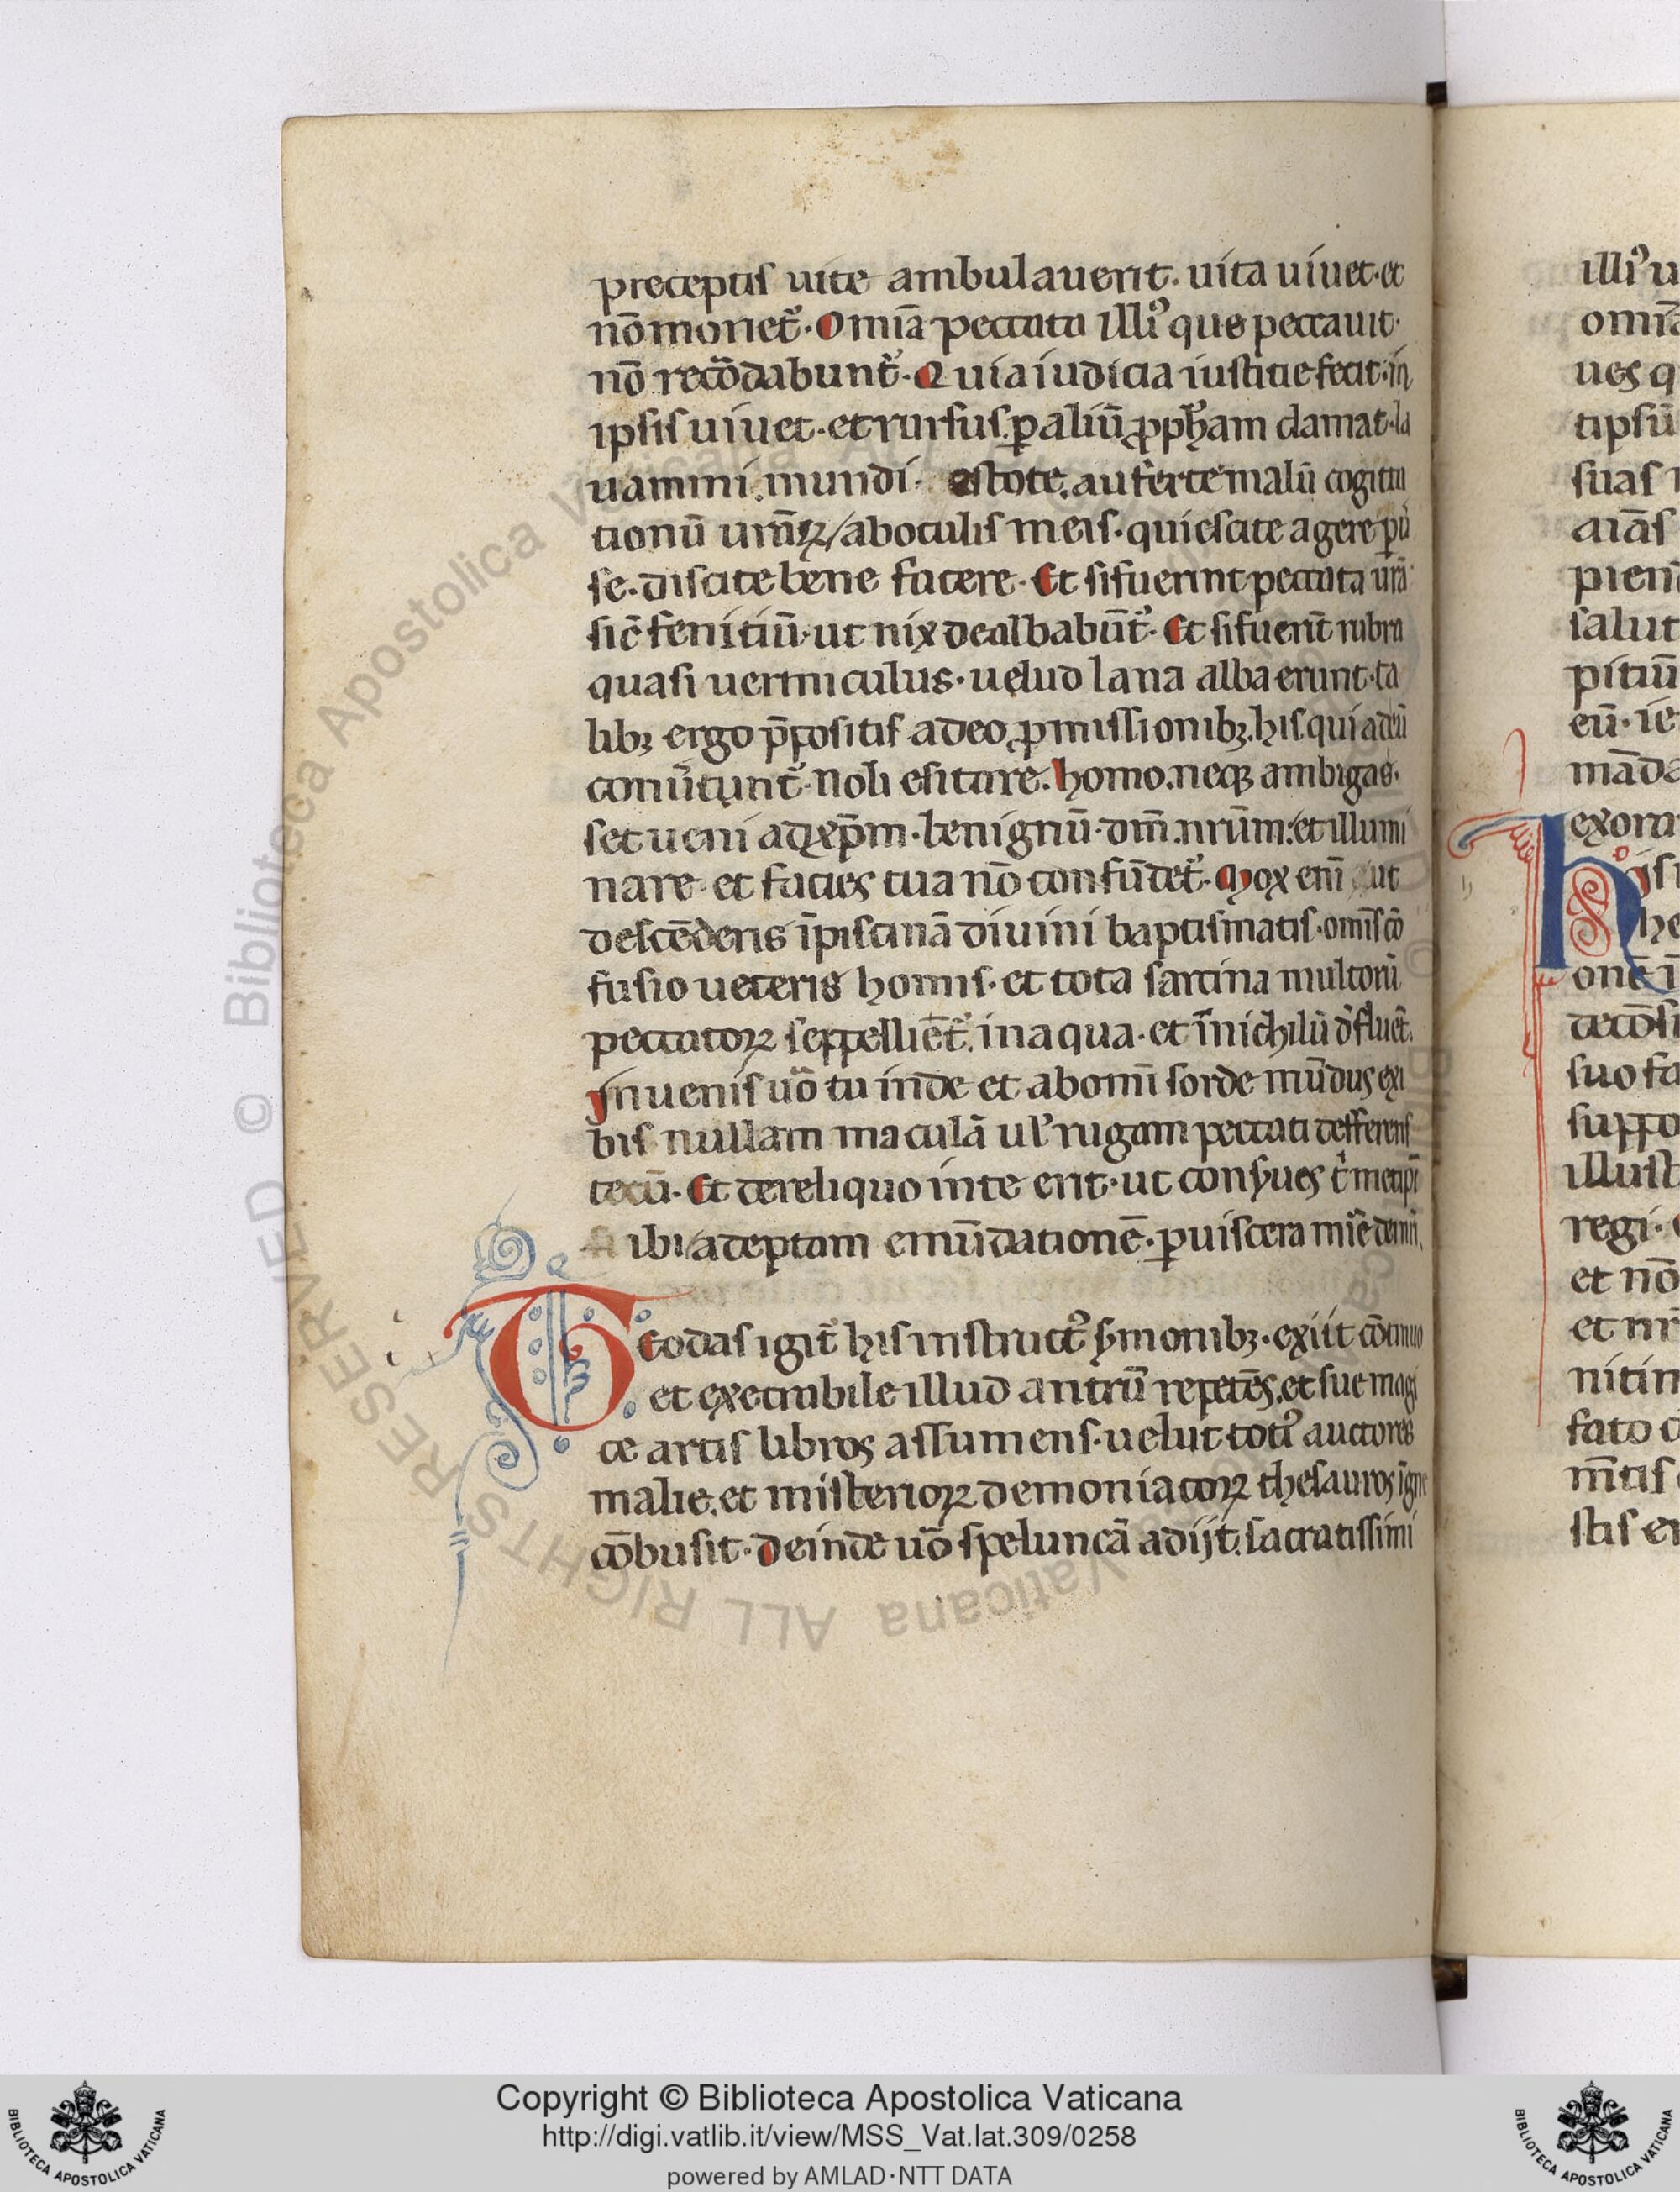 preceptis uite ambulauerit. uita uiuet. et
nō moriet᷑. Omīa peccata illiꝰ que peccauit.
nō recōdabunt᷑. Quia iudicia iustitie fecit. in
ipsis uiuet. et rursus. ꝑ aliū ꝓph̄am clamat. la
uamini. mundi. estote. auferte malū cogita
tionū ur̄aꝝ / ab oculis meis. quiescite agere
se. discite bene facere. Et si fuerint peccata ur̄a
sic̄ fenitiū. ut nix dealbabūt᷑. Et si fuerīt rubra
quasi uermiculus. uelud lana alba erunt. ta
libꝫ ergo p̄positis a deo, ꝓmissionibꝫ. his qui ad eū
conūtunt᷑. Noli esitare. homo. neqꝫ ambigas.
set ueni ad xp̄m. benignū. dn̄m. nr̄um. et illumi
nare. et facies tua nō confūdet᷑. Mox enī ut
descēderis ī piscinā diuini baptismatis. omīs cō
fusio ueteris homīs. et tota sarcina multorū
peccatoꝝ seppelliet᷑. in aqua. et ī nichilū d̓fluet᷑.
Inuenis uō tu inde et ab omī sorde mūdus exi
bis nullam maculā ul̓ rugam peccati defferens
tecū. Et de reliquo in te erit. ut conẜues
ibi / adeptam emūdationē. ꝑ uiscera
Teodas igit᷑ his instructꝰ ẜmonibꝫ. exiit cōtinuo
et execrabile illud antrū repetēs. et sue magi
ce artis libros assumens. uelut totiꝰ auctores
malie. et misterioꝝ demoniacoꝝ thesauros igne
cōbusit. Deinde uō speluncā adijt. sacratissimi
illiꝰ u
omīa
ues q
tipsū
suas
aīas
pien
salut
pitiū
eū. ie
māda
exora
His
he
onē ī
suo fa
suppo
illust
regi.
et nō
et nr
nitin
fato
m̄tis
stis
Copyright © Biblioteca Apostolica Vaticana
http://digi.vatlib.it/view/MSS_Vat.lat.309/0258
powered by AMLAD·NTT DATA
BIBLIOTECA APOSTOLICA VATICANA
BIBLIOTECA APOSTOLICA VATICANA
© Biblioteca Apostolica Vaticana ALL RIGHTS RESERVED